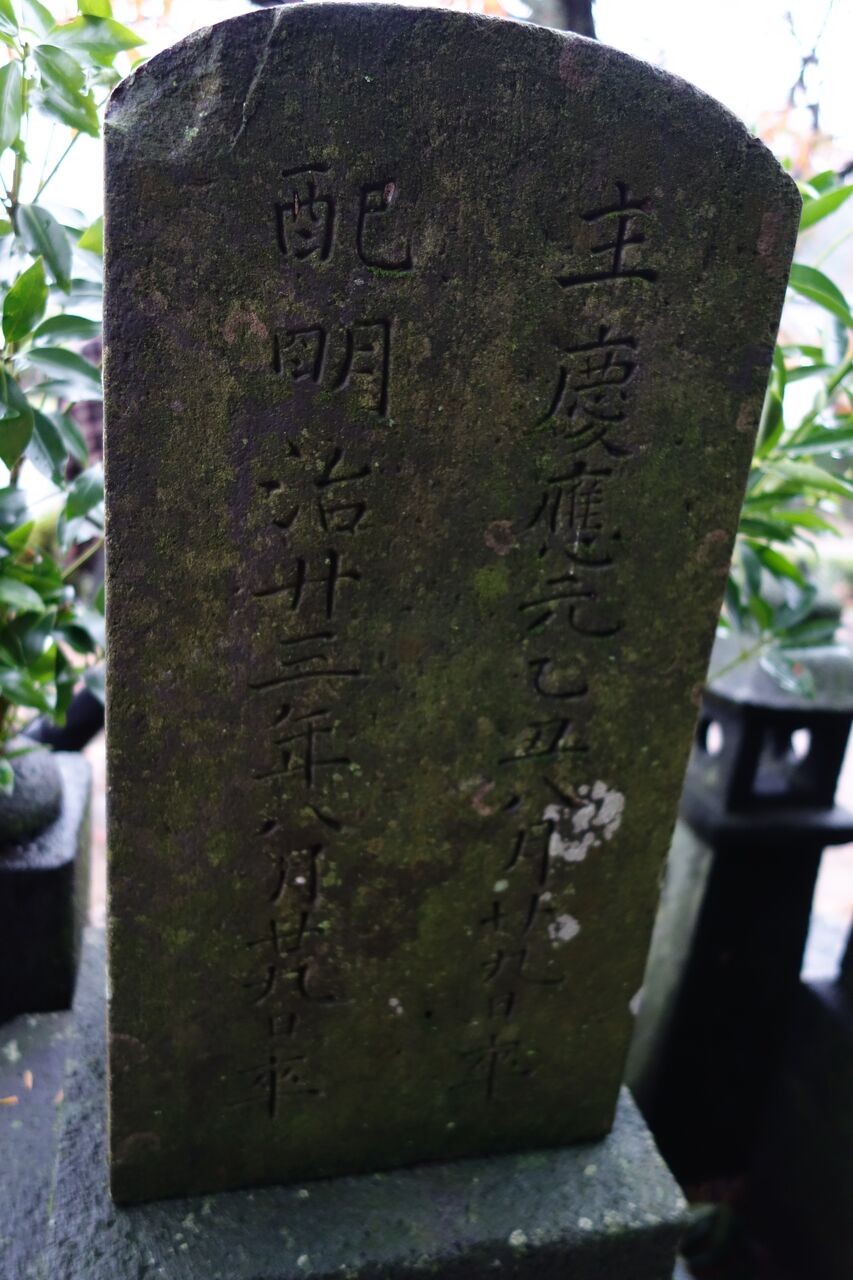 主慶應元乙丑八月廿九日卒
配明治廿三年八月廿九日卒